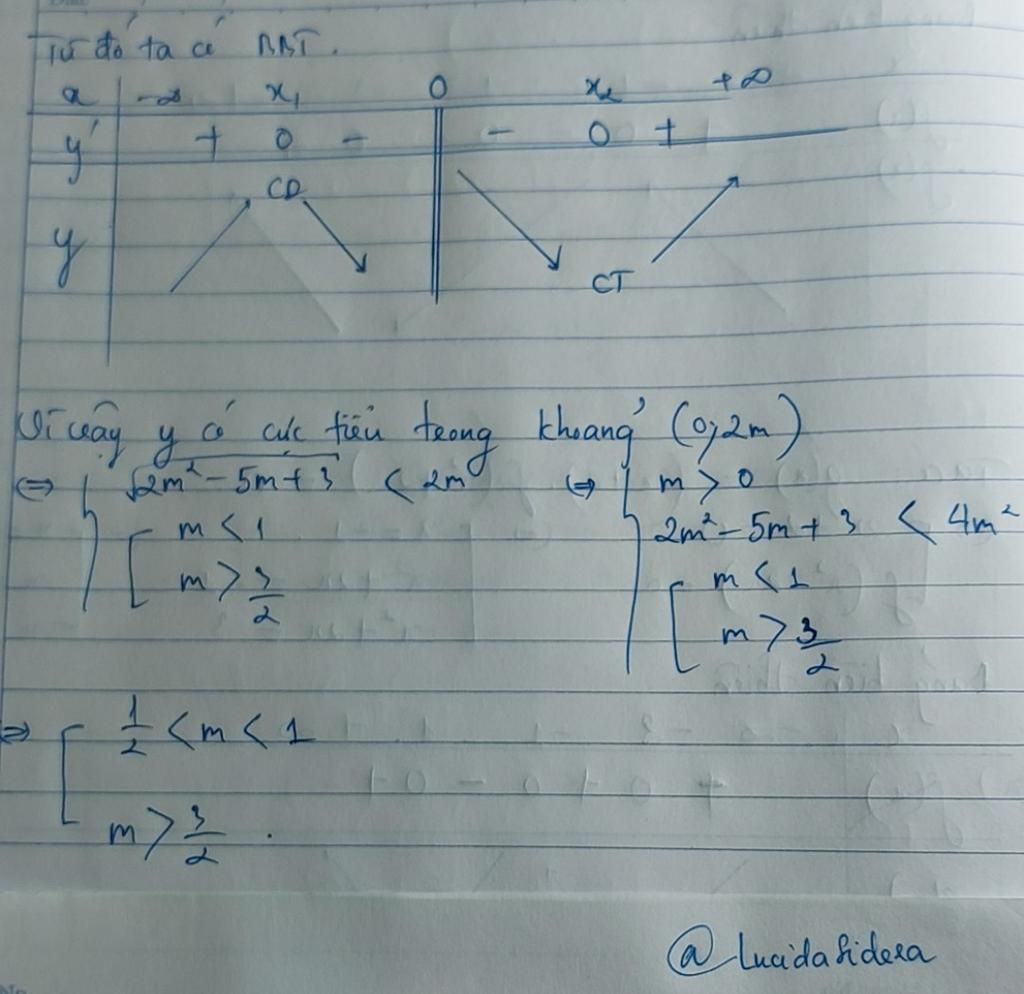 Từ đó ta có BBT.
x -∞ x₁ 0 x₂ +∞
y' + 0 - - 0 +
CĐ
y
CT
Vì vậy y có cực tiểu trong khoảng (0;2m)
⇔ { √2m² - 5m + 3 < 2m ⇔ { m > 0
[ m < 1 2m² - 5m + 3 < 4m²
m > 3/2 [ m < 1
m > 3/2
⇒ [ 1/2 < m < 1
m > 3/2 .
@Lucidasidera